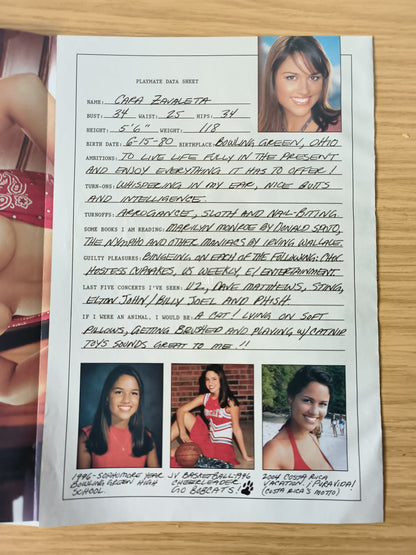 PLAYMATE DATA SHEET
NAME: CARA ZAVALETA
BUST: 34 WAIST: 25 HIPS: 34
HEIGHT: 5'6" WEIGHT: 118
BIRTH DATE: 6-15-80 BIRTHPLACE: BOWLING GREEN, OHIO
AMBITIONS: TO LIVE LIFE FULLY IN THE PRESENT
AND ENJOY EVERYTHING IT HAS TO OFFER!
TURN-ONS: WHISPERING IN MY EAR, NICE BUTTS
AND INTELLIGENCE
TURNOFFS: ARROGANCE, SLOTH AND NAIL-BITING.
SOME BOOKS I AM READING: MARILYN MONROE BY DONALD SPOTO,
THE NYMPHO AND OTHER MANIACS BY IRVING WALLACE.
GUILTY PLEASURES: BINGEING ON EACH OF THE FOLLOWING: CHOC.
HOSTESS CUPCAKES, US WEEKLY, E! ENTERTAINMENT
LAST FIVE CONCERTS I'VE SEEN: U2, DAVE MATTHEWS, STING,
ELTON JOHN/BILLY JOEL AND PHISH
IF I WERE AN ANIMAL, I WOULD BE: A CAT! LYING ON SOFT
PILLOWS, GETTING BRUSHED AND PLAYING W/CATNIP
TOYS SOUNDS GREAT TO ME!!
1996-SOPHOMORE YEAR
BOWLING GREEN HIGH
SCHOOL.
JV BASKETBALL-1996
CHEERLEADER
GO BOBCATS!
2004 COSTA RICA
VACATION. ¡PURA VIDA!
(COSTA RICA'S MOTTO)